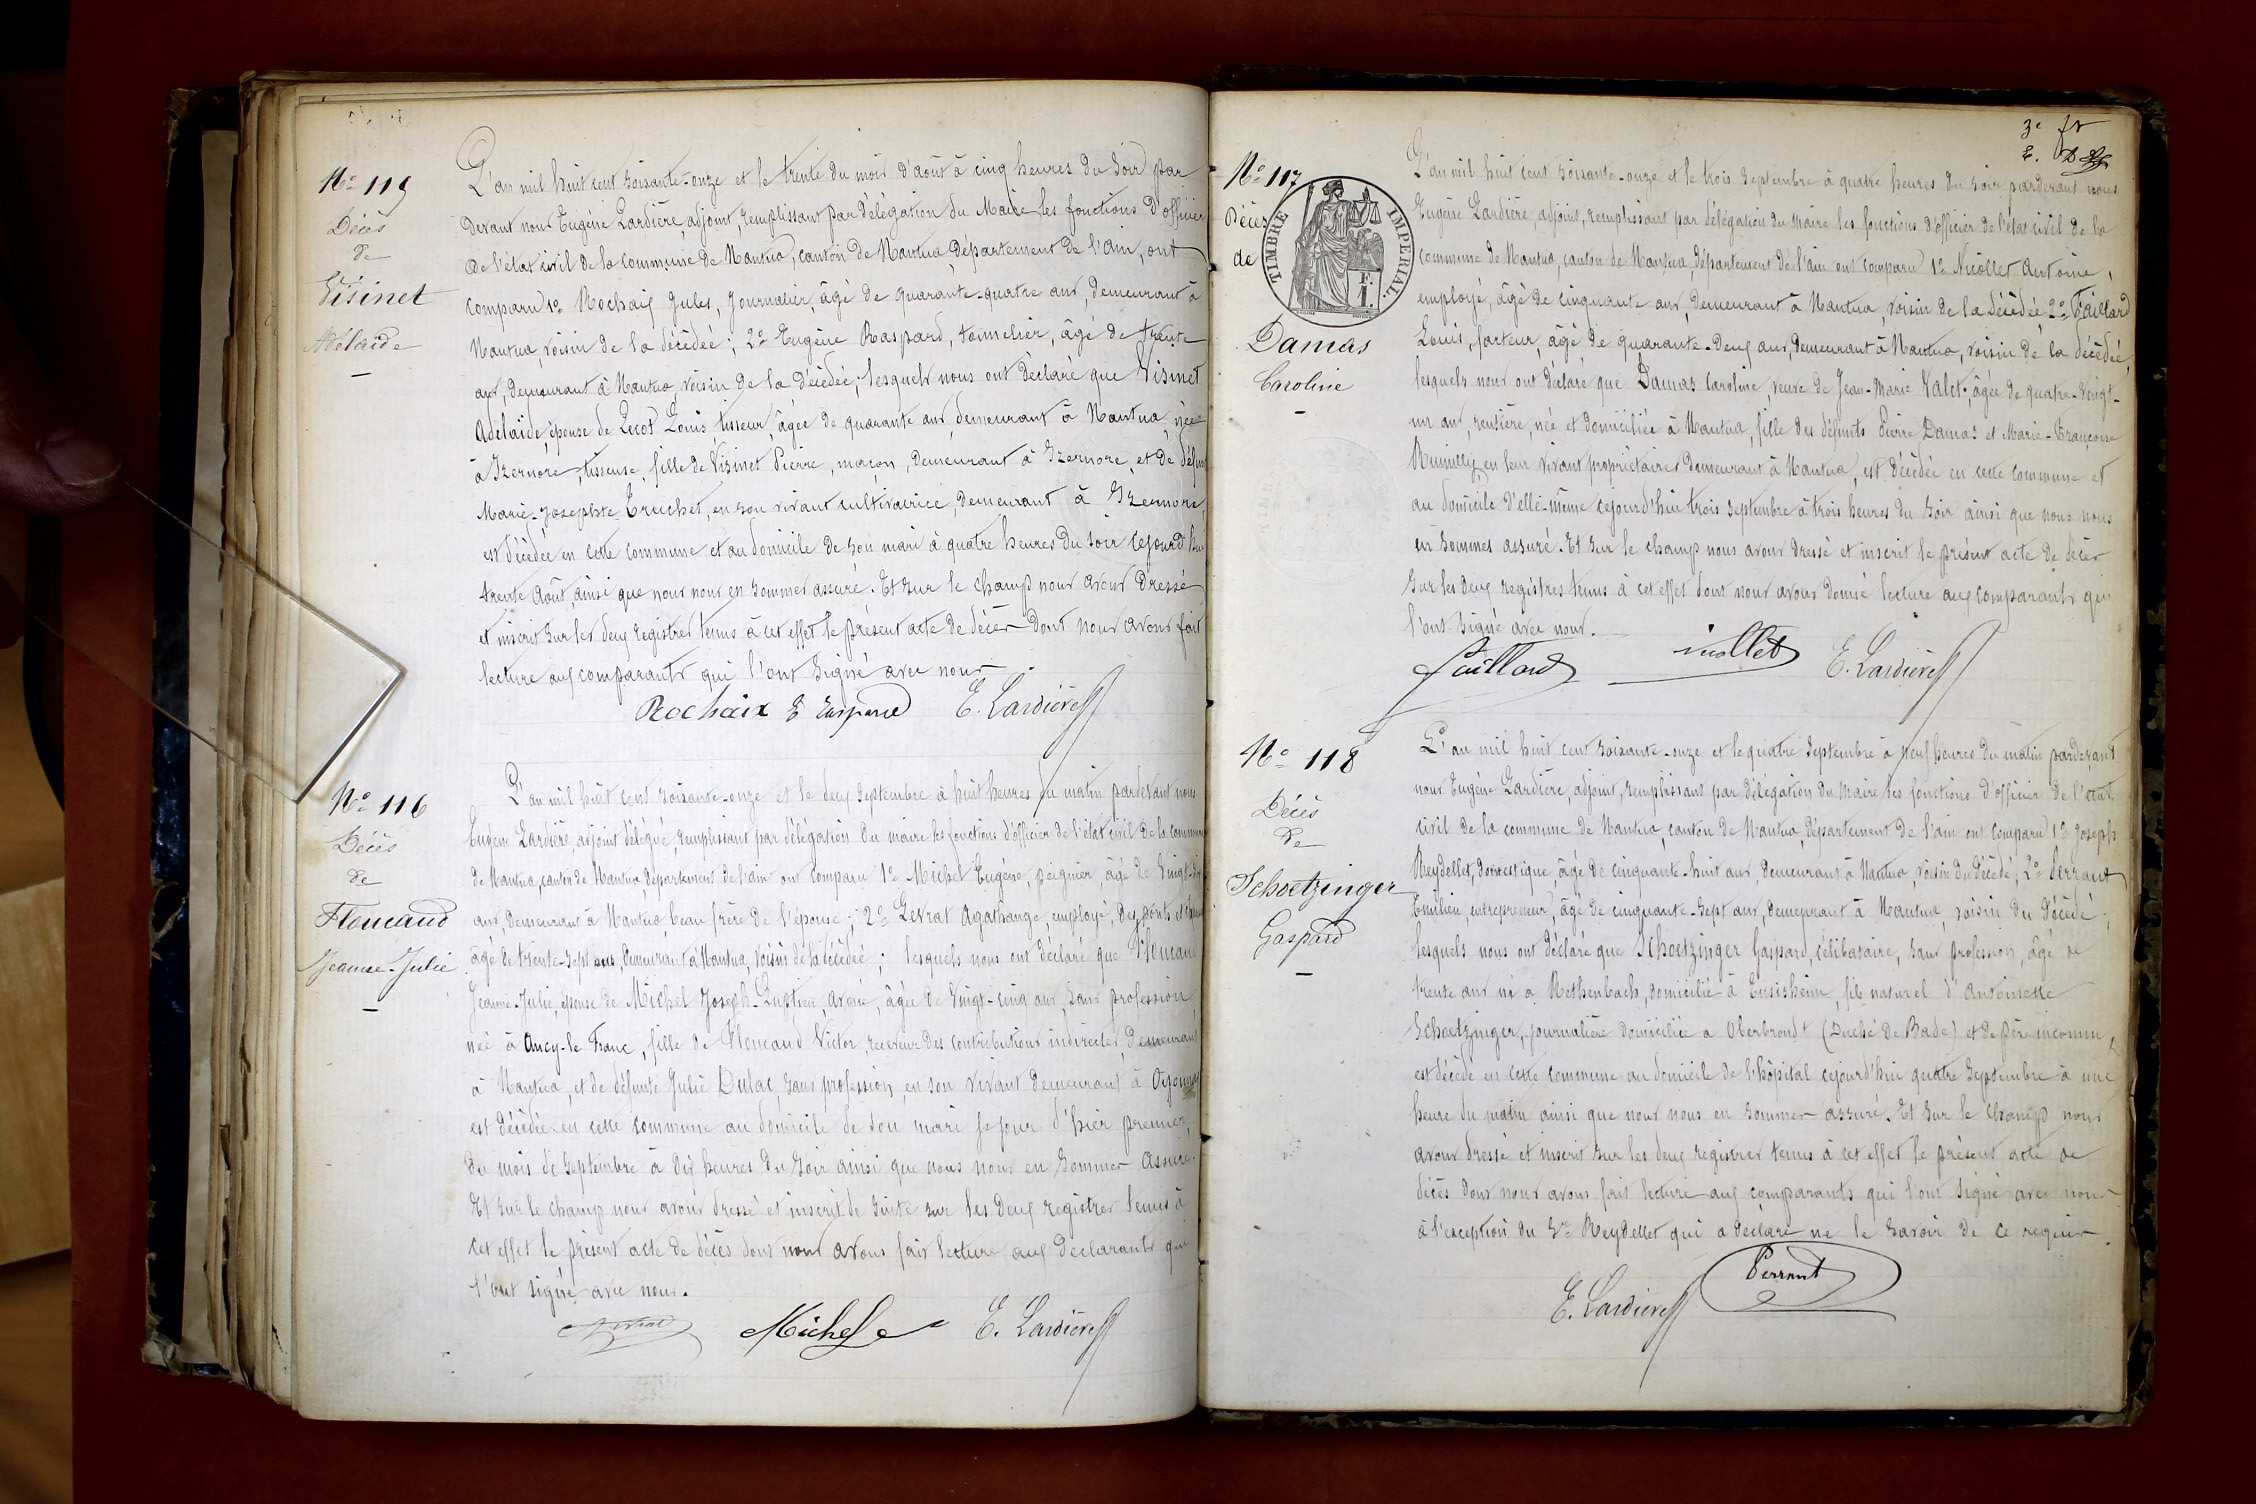 No 115
Décès
de
Visinet
Adelaide
L'an mil huit cent soixante-onze et le trente du mois d'août à cinq heures du soir par
devant nous Eugène Lardière, adjoint, remplissant par délégation du Maire les fonctions d'officier
de l'état civil de la commune de Nantua, canton de Nantua, département de l'ain, ont
comparu 1o Rochaix Jules, journalier, âgé de quarante-quatre ans, demeurant à
Nantua, voisin de la décédée; 2o Eugène Raspard, tonnelier, âgé de trente
ans, demeurant à Nantua, voisin de la décédée; lesquels nous ont déclaré que Visinet
Adelaïde, épouse de Lecot Louis tisseur, âgée de quarante ans, demeurant à Nantua, née
à Izernore, tisseuse, fille de Visinet Pierre, maçon, demeurant à Izernore, et de défunte
Marie-Josephte Truchet, en son vivant cultivatrice, demeurant à Izernore,
est décédée en cette commune et au domicile de son mari à quatre heures du soir cejourd'hui
trente Août, ainsi que nous nous en sommes assuré. Et sur le champ nous avons dressé
et inscrit sur les deux registres tenus à cet effet le présent acte de décès dont nous avons fait
lecture aux comparants qui l'ont signé avec nous.
Rochaix E Raspard E. Lardière
No 116
Décès
de
Floucaud
Jeanne-Julie
L'an mil huit cent soixante-onze et le deux septembre à huit heures du matin pardevant nous
Eugène Lardière, adjoint délégué, remplissant par délégation du maire les fonctions d'officier de l'état civil de la commune
de Nantua, canton de Nantua département de l'ain ont comparu 1o Michel Eugène, peignier, âgé de vingt-
ans, demeurant à Nantua, beau frère de l'épouse; 2o Levrat Agathange, employé, des ponts et
âgé de trente-sept ans, demeurant à Nantua, voisin de la décédée; lesquels nous ont déclaré que Floucaud
Jeanne-Julie, épouse de Michel Joseph avoué, âgée de vingt-cinq ans, sans profession
née à Ancy-le Franc, fille de Floucaud Victor, receveur des contributions indirectes, demeurant
à Nantua, et de défunte Julie Dulac, sans profession, en son vivant demeurant à Oyonnax
est décédée en cette commune au domicile de son mari le jour d'hier premier
du mois de septembre à dix heures du soir ainsi que nous nous en sommes assuré.
Et sur le champ nous avons dressé et inscrit de suite sur les deux registres tenus à
cet effet le présent acte de décès dont nous avons fait lecture aux déclarants qui
l'ont signé avec nous.
Michel E. Lardière
3e
No 117
Décès
de
TIMBRE IMPERIAL.
1 F.
Damas
Caroline
L'an mil huit cent soixante-onze et le trois septembre à quatre heures du soir pardevant nous
Eugène Lardière, adjoint, remplissant par délégation du maire les fonctions d'officier de l'état civil de la
commune de Nantua, canton de Nantua, département de l'ain ont comparu 1o Nicollet Antoine,
employé, âgé de cinquante ans, demeurant à Nantua, voisin de la décédée 2o Paillard
Louis, facteur, âgé de quarante-deux ans, demeurant à Nantua, voisin de la décédée,
lesquels nous ont déclaré que Damas Caroline, veuve de Jean-Marie Valet, âgée de quatre-vingt-
un ans, rentière, née et domiciliée à Nantua, fille des défunts Pierre Damas et Marie-Françoise
Ruinilly, en leur vivant propriétaires demeurant à Nantua, est décédée en cette commune et
au domicile d'elle-même cejourd'hui trois septembre à trois heures du soir ainsi que nous nous
en sommes assuré. Et sur le champ nous avons dressé et inscrit le présent acte de décès
sur les deux registres tenus à cet effet dont nous avons donné lecture aux comparants qui
l'ont signé avec nous.
Paillard Nicollet E. Lardière
No 118
Décès
de
Schoetzinger
Gaspard
L'an mil huit cent soixante-onze et le quatre septembre à neuf heures du matin pardevant
nous Eugène Lardière, adjoint, remplissant par délégation du Maire les fonctions d'officier de l'état
civil de la commune de Nantua, canton de Nantua, département de l'ain ont comparu 1o Joseph
Reydellet, domestique, âgé de cinquante-huit ans, demeurant à Nantua, voisin du décédé; 2o Perrant
Emilien, entrepreneur, âgé de cinquante-sept ans, demeurant à Nantua, voisin du décédé;
lesquels nous ont déclaré que Schoetzinger Gaspard, célibataire, sans profession, âgé de
trente ans né à Rothenbach, domicilié à Ensisheim, fils naturel d'Antoinette
Schoetzinger, journalière domiciliée à Oberbrond (Duché de Bade) et de père inconnu,
est décédé en cette commune au domicile de l'hôpital cejourd'hui quatre septembre à une
heure du matin ainsi que nous nous en sommes assuré. Et sur le champ nous
avons dressé et inscrit sur les deux registres tenus à cet effet le présent acte de
décès dont nous avons fait lecture aux comparants qui l'ont signé avec nous
à l'exception du Sr Reydellet qui a déclaré ne le savoir de ce requis.
E. Lardière Perrant